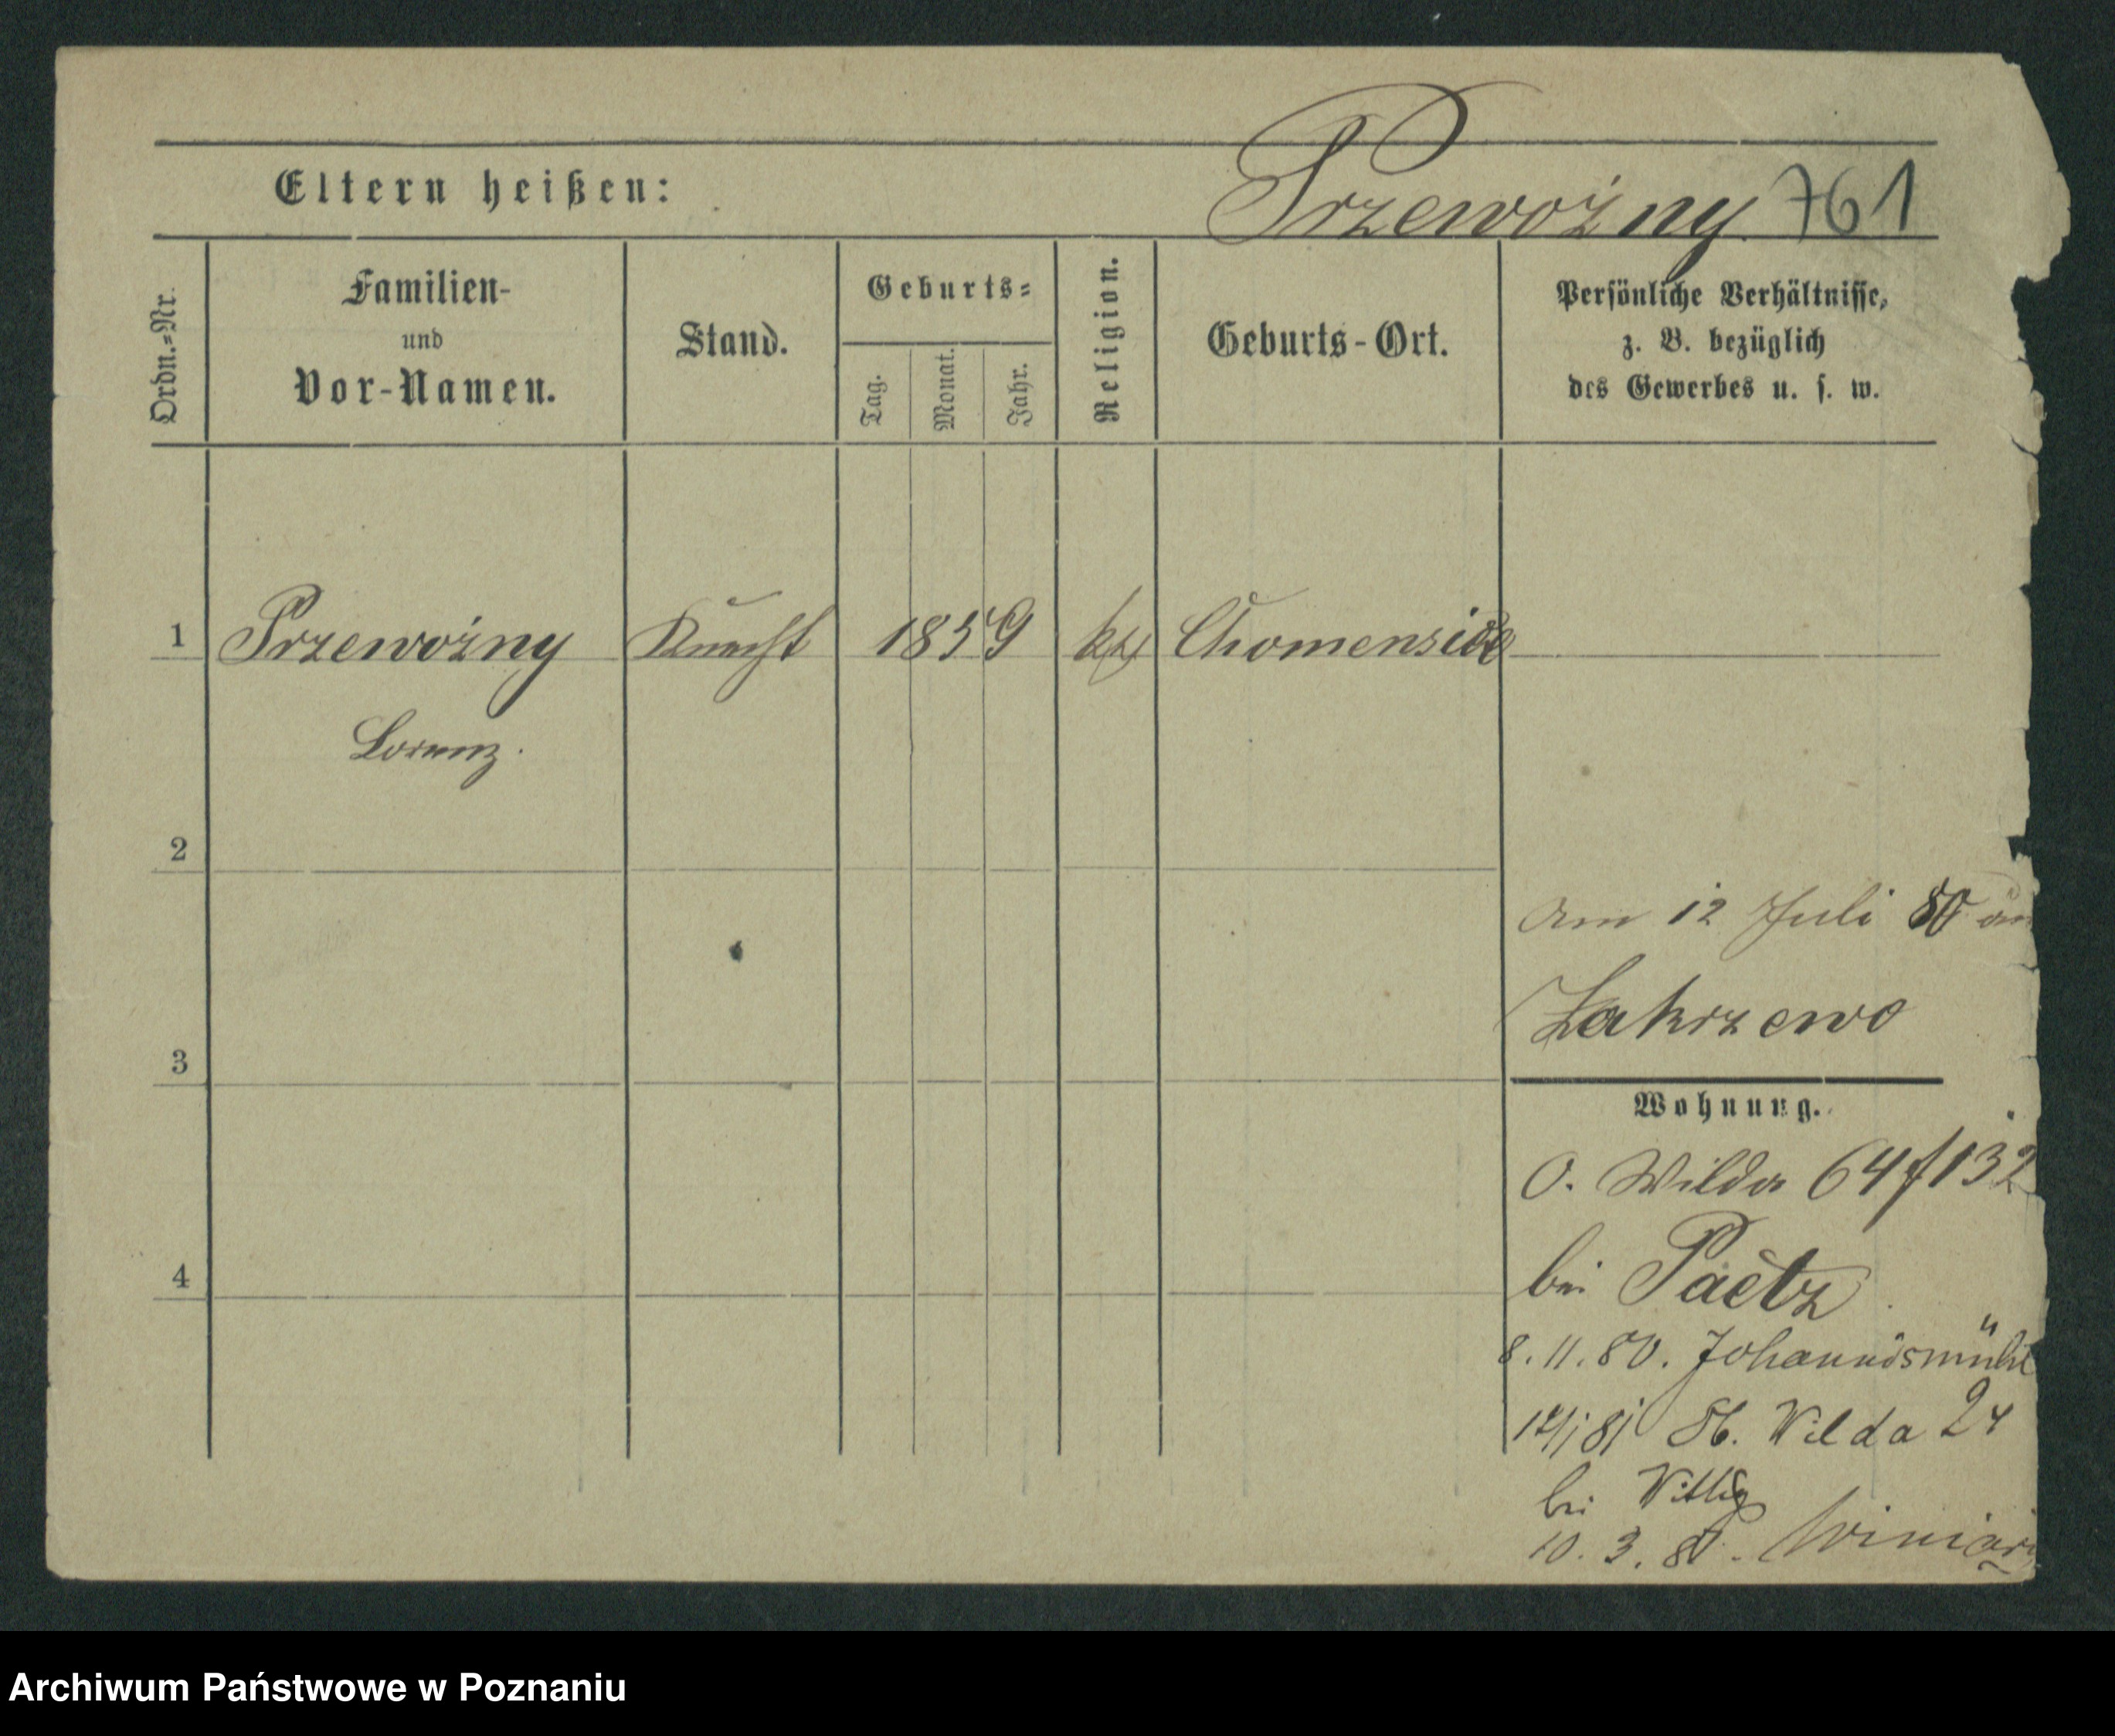 Eltern heißen: Przewoźny 761
Ordn.-Nr.
Familien-
und
Vor-Namen.
Stand.
Geburts-
Tag.
Monat.
Jahr.
Religion.
Geburts-Ort.
Persönliche Verhältnisse,
z. B. bezüglich
des Gewerbes u. s. w.
1 Przewoźny Knecht 1859 Chomencice
Lorenz.
2
am 12 Juli 80
Zakrzewo
3
Wohnung.
O. Wilda 64/132
bei Paetz
4
8.11.80. Johannismühl
St. Wilda 24
bei Wittig
10. 3. 81. Winiary
Archiwum Państwowe w Poznaniu